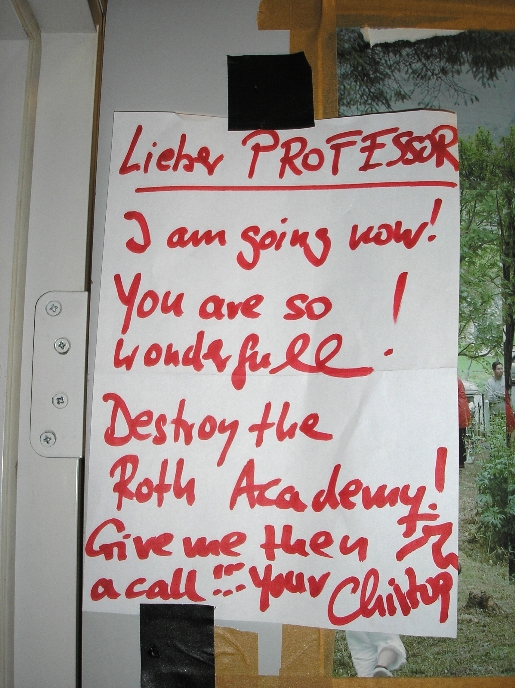 Lieber PROFESSOR
I am going now!
You are so
wonderfull!
Destroy the
Roth Academy!
Give me then
a call!!! Your